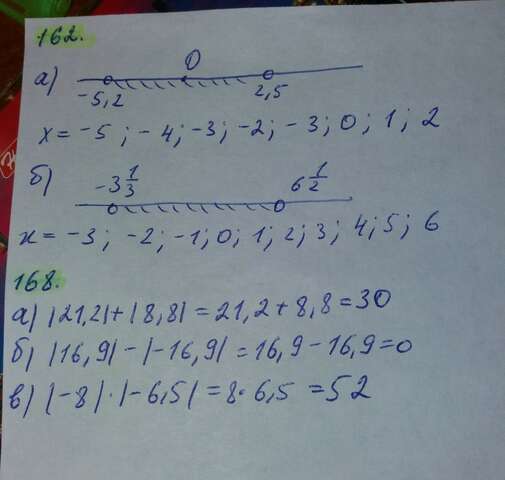 162.
а) 0
-5,2 2,5
x = -5; -4; -3; -2; -3; 0; 1; 2
б) -3 1/3 6 1/2
x = -3; -2; -1; 0; 1; 2; 3; 4; 5; 6
168.
а) |21,2| + |8,8| = 21,2 + 8,8 = 30
б) |16,9| - |-16,9| = 16,9 - 16,9 = 0
в) |-8| · |-6,5| = 8 · 6,5 = 52